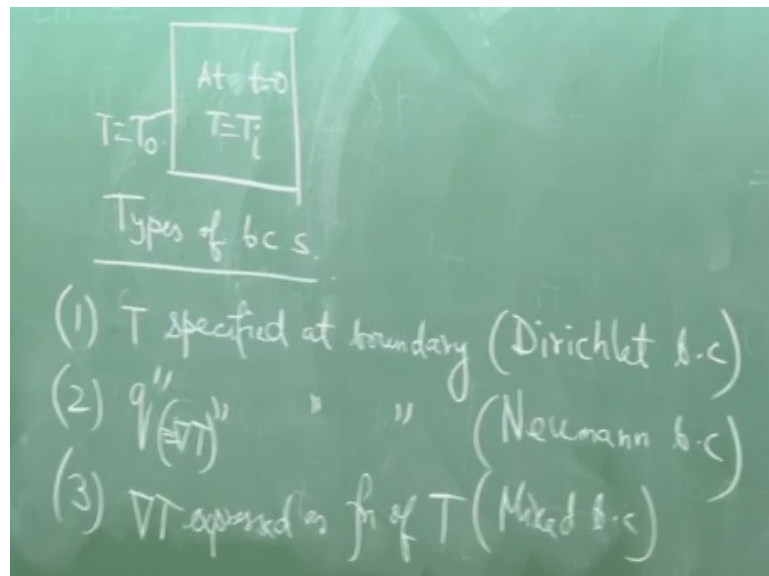 At t=0
T=T₀
T=Tᵢ
Types of bc s.
(1) T specified at boundary (Dirichlet b.c)
(2) q" (≡∇T) " " " (Neumann b.c)
(3) ∇T expressed as fn of T (Mixed b.c)